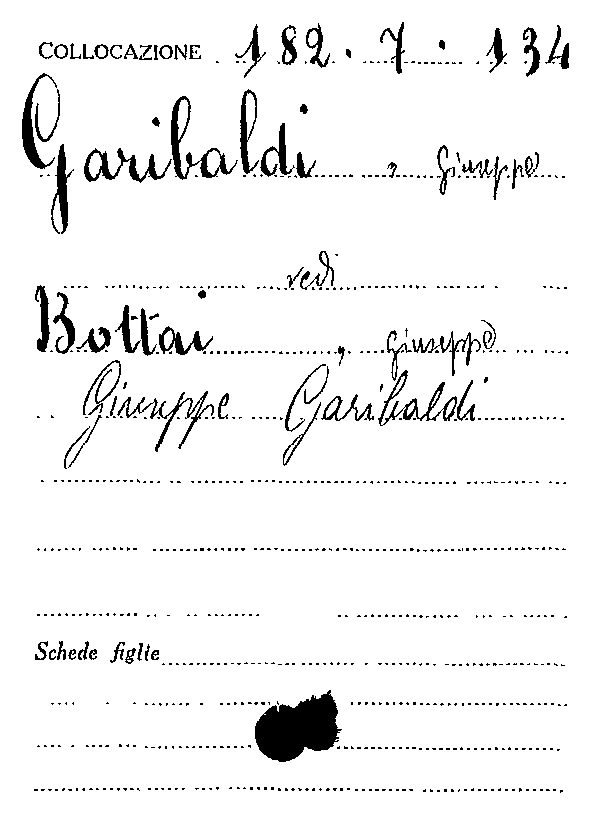 COLLOCAZIONE 182.7.134
Garibaldi, Giuseppe
vedi
Bottai, Giuseppe
Giuseppe Garibaldi
Schede figlie